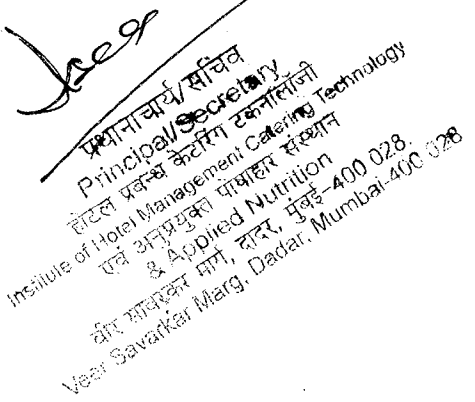 प्रधानाचार्य/सचिव
Principal/Secretary
होटल प्रबन्ध केटरिंग टेक्नोलॉजी
Institute of Hotel Management Catering Technology
एवं अनुप्रयुक्त पोषाहार संस्थान
& Applied Nutrition
वीर सावरकर मार्ग, दादर, मुंबई-400 028.
Veer Savarkar Marg, Dadar, Mumbai-400 028